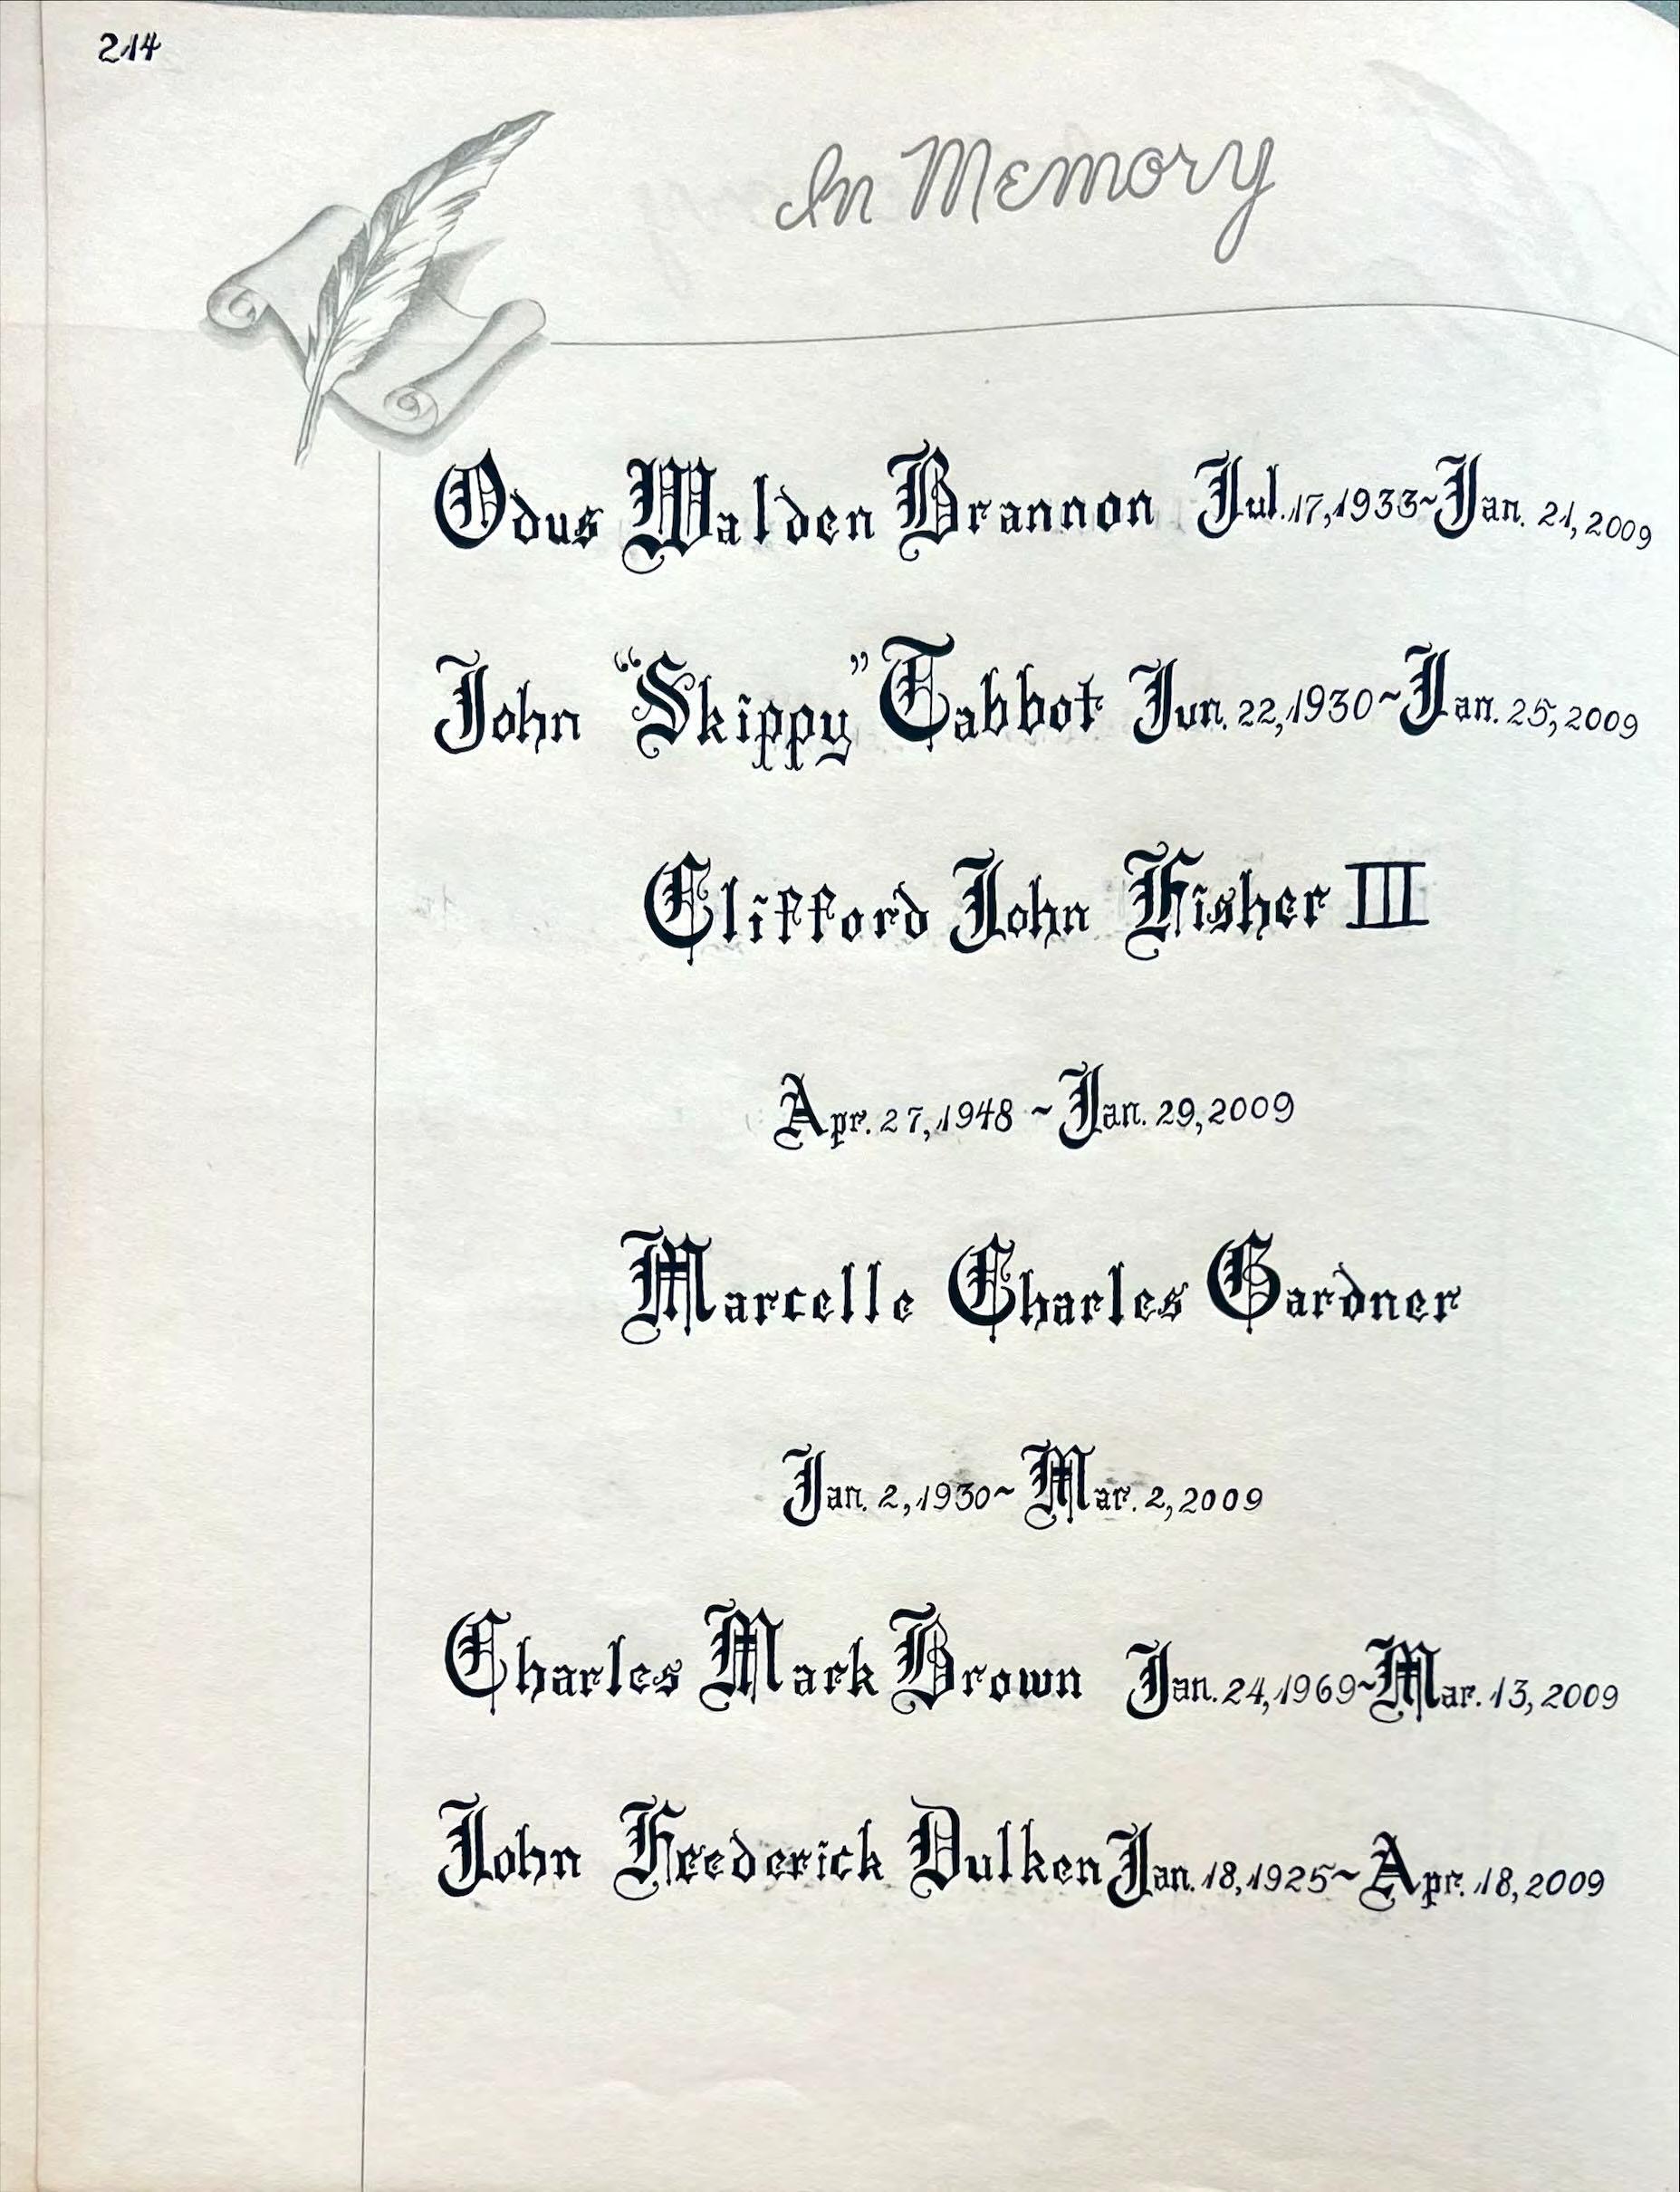 214
In Memory
Odus Walden Brannon Jul. 17, 1933~Jan. 21, 2009
John "Skippy" Tabbot Jun. 22, 1930~Jan. 25, 2009
Clifford John Fisher III
Apr. 27, 1948 ~ Jan. 29, 2009
Marcelle Charles Gardner
Jan. 2, 1930~ Mar. 2, 2009
Charles Mark Brown Jan. 24, 1969~Mar. 13, 2009
John Frederick Dulken Jan. 18, 1925~ Apr. 18, 2009